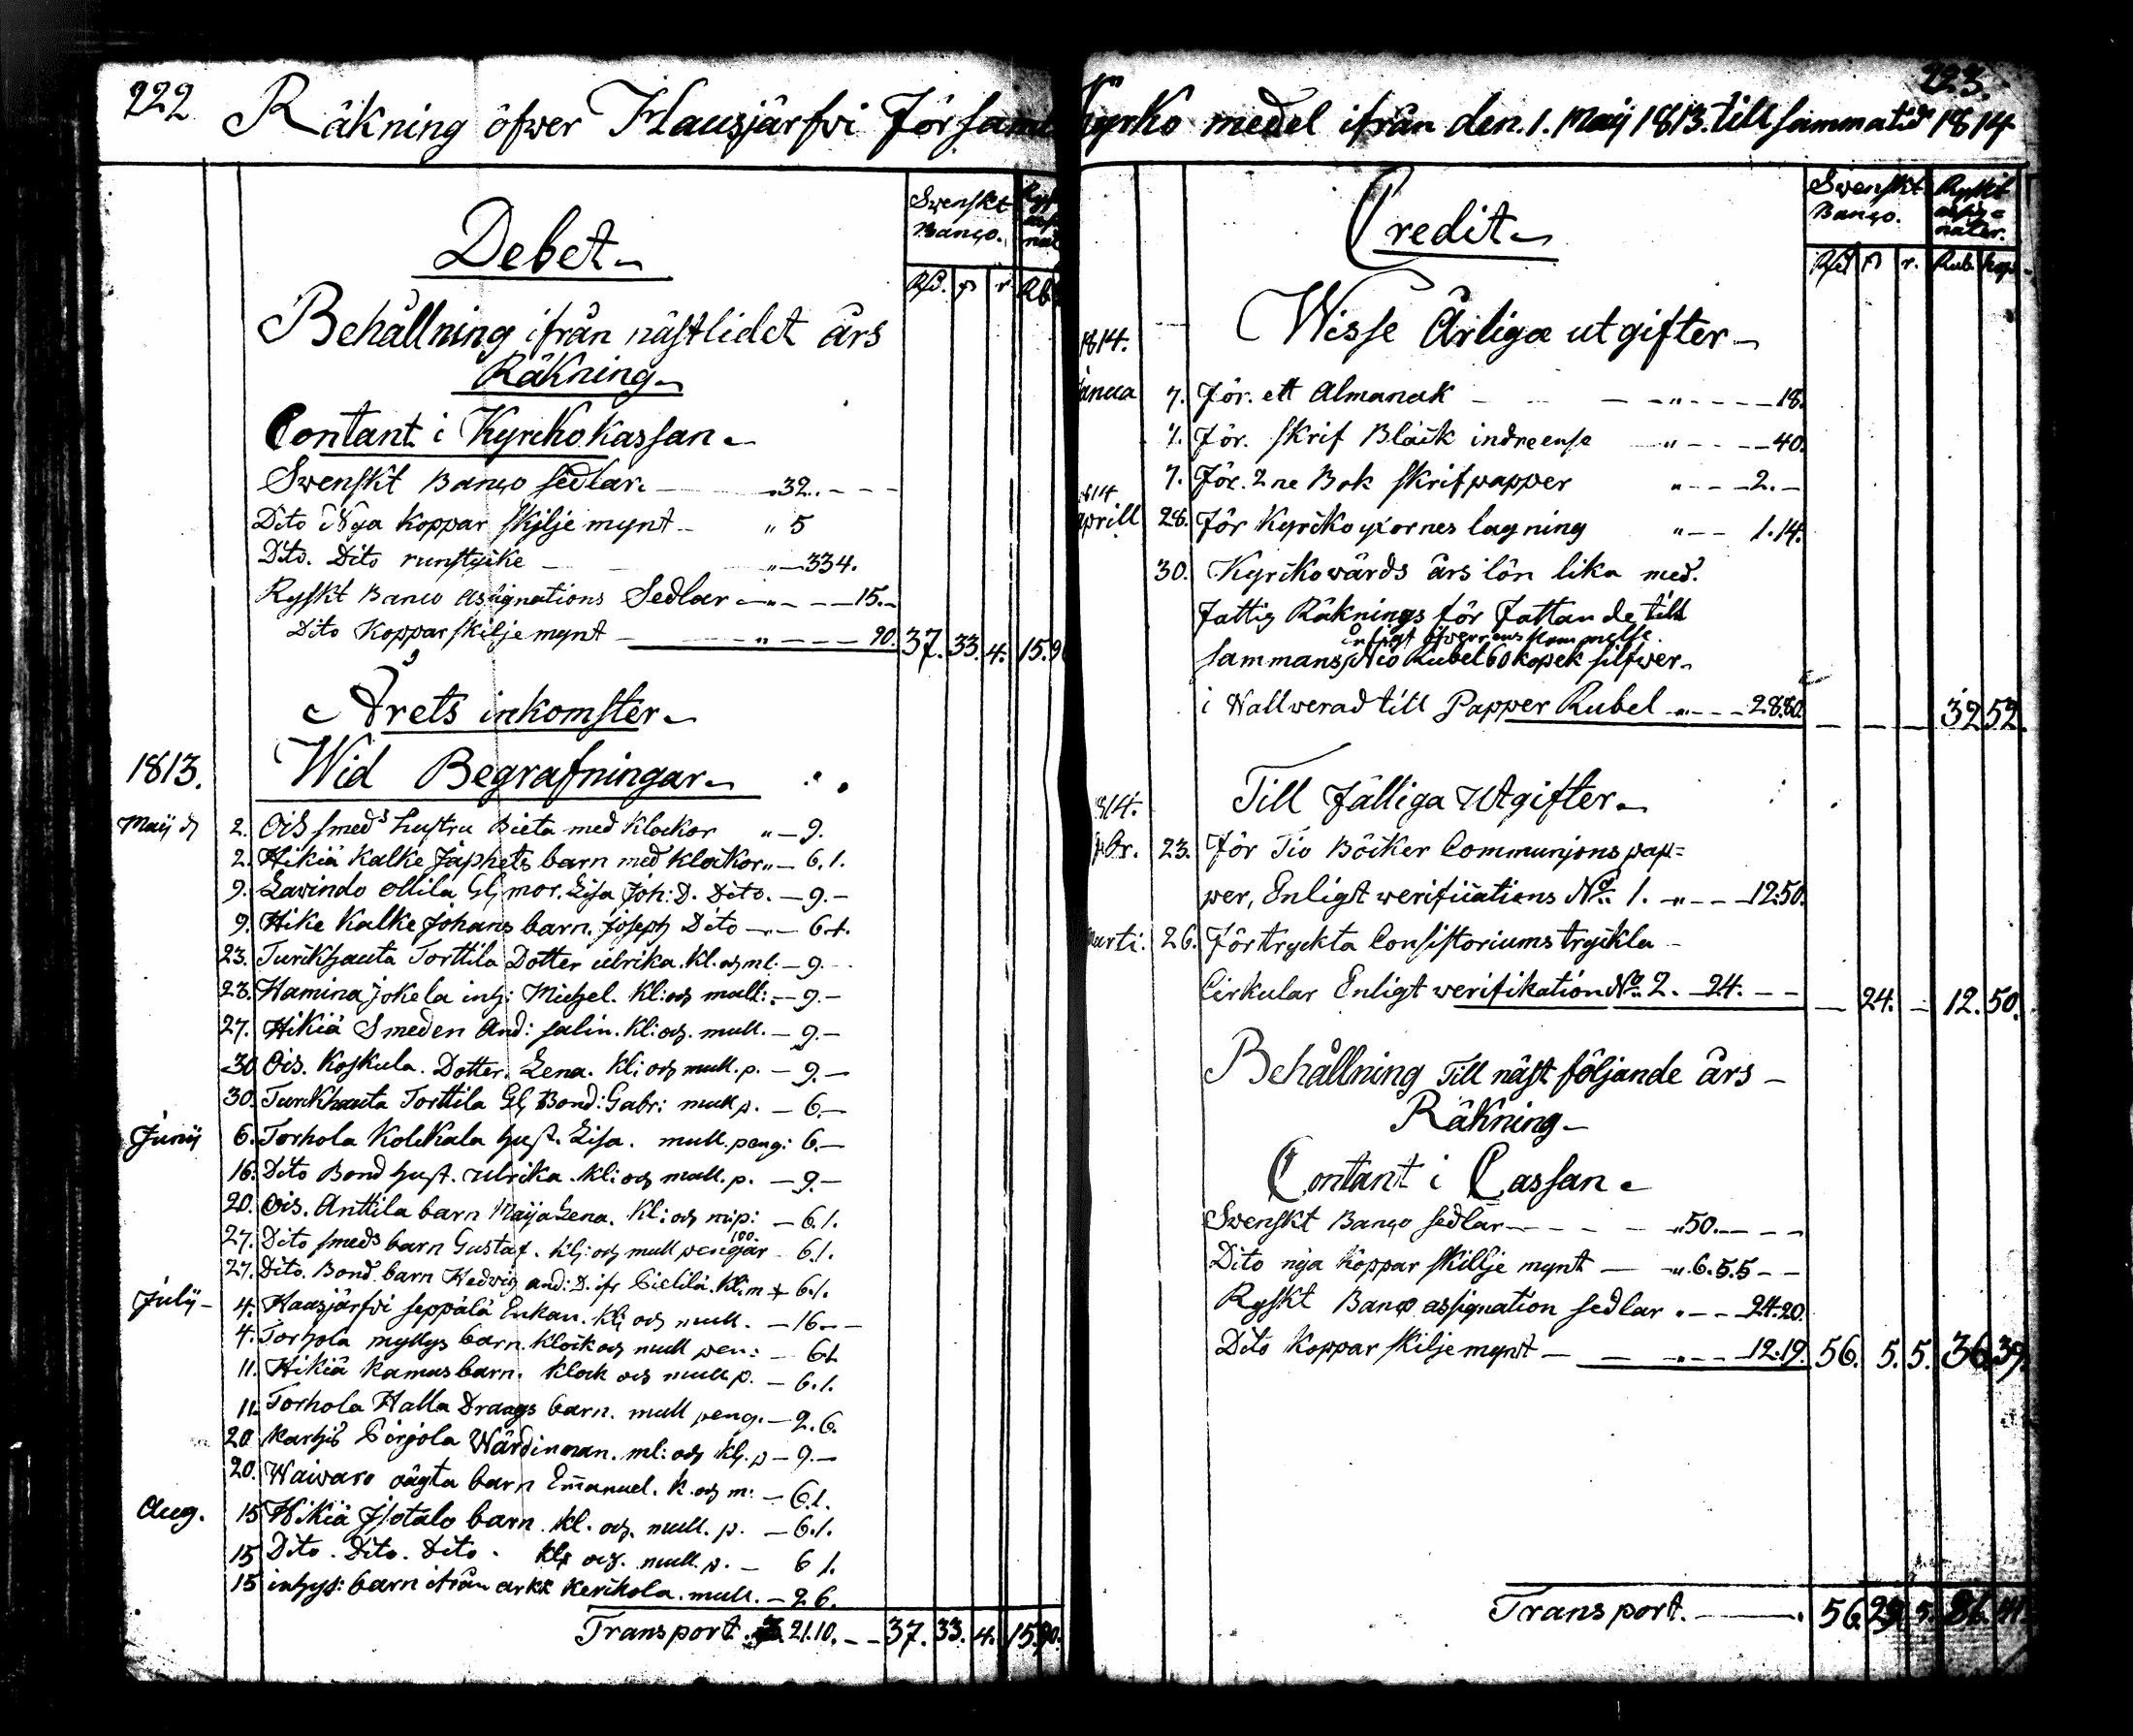 222
Räkning öfwer Hausjärfvi Församl
Swenskt Banco.
Debet
Rd. ß r. Rb
Behållning ifrån nästlidet års
Räkning
Contant i Kyrckokassan
Swenskt Banco sedlar. „ 32. - - -
Dito Nya Koppar skilje mynt „ 5
Dito. Dito runstycke „ 334.
Ryskt Banco Assignations Sedlar „ - - 15. -
Dito Koppar skiljemynt „ - - - 90. 37. 33. 4. 15. 9
Årets inkomster
1813. Wid Begrafningar
Maij d 2. Ois smeds hustru Bieta med klockor „ - 9.
2. Hikiä Kalke Japhets barn med klockor „ - 6. 1.
9. Lavindo Ollila Gl mor. Lisa Joh: D. Dito. - 9. -
9. Hike Kalke Johans barn. Joseph Dito - „ - 6 1.
23. Turkhauta Torttila Dotter Ulrika. Kl. och ml. - 9. -
23. Hamina Jokela inh: Michel. Kl: och mull: - 9. -
27. Hikiä Smeden And: Salin. Kl: och. mull. - 9. -
30 Ois. Koskula. Dotter. Lena. Kl: och mull. p. - 9. -
30. Turkhauta Torttila Gl Bond: Gabr: mull p. - 6. -
Junij 6. Torhola Kolckala hust. Lisa. mull. peng: 6. -
16. Dito Bond hust. Ulrika. Kl: och mull. p. - 9. -
20. Ois. Anttila barn Maija Lena. Kl: och m:p: - 6. 1.
27. Dito smeds barn Gustaf. Kl: och mull pengar - 6. 1.
27. Dito. Bond. barn Hedvig And: D. ifr Pietilä. Kl: m 6. 1.
Julij - 4. Hausjärfvi Seppälä Enkan. Kl: och mull. - 16 - -
4. Torhola myllys barn. Klock och mull pen: - 6 1.
11. Hikiä Kamus barn. Klock och mull p. - 6. 1.
11. Torhola Halla Drängs barn. mull peng. - 2. 6.
20 Karhis Pirjola Wärdinnan. ml: och kl. p - 9. -
20. Waiwaro barn Emanuel. K. och m: - 6. 1.
Aug. 15 Hikiä Isotalo barn. Kl. och. mull. p. - 6. 1.
15 Dito. Dito. Dito. Kl och. mull. p. - 6 1.
15 inhys: barn ifrån Kerikola. mull. - 2 6.
Transport. 3. 21. 10. - - 37. 33. 4. 15. 90.
223.
Kyrko medel ifrån den. 1. Maij 1813. till samma tid 1814
Swenskt Banco. Ryskt assignater.
Credit
Rd ß r. Rub. kop.
Wisse Årliga utgifter
1814.
Janua 7. För. ett Almanak - „ - - - 18.
7. För. skrif Bläck „ - - - 40.
7. För. 2 ne Bok skrifpapper „ - - 2. -
1814
Aprill 28. För Kyrcko yxornes lagning „ - - 1. 14.
30. Kyrckowärds årslön lika med.
Fattig Räknings författande till
enligt öfwerenskommelse.
sammans, Nio Rubel 60 kopek silfwer
i Wallwerad till Papper Rubel „ - - - 28. 80. - - - 32 52.
Till fälliga Utgifter
1814.
Febr. 23. För Tio Böcker Communjons pap=
per, Enligt werifications No. 1. „ - - - 12. 50.
Marti. 26. För tryckta Consistoriums tryckta
Cirkular Enligt werifikation No. 2. - 24. - - - 24. - 12. 50.
Behållning Till näst följande års
Räkning
Contant i Cassan
Swenskt Banco sedlar - - - - „ 50. - - -
Dito nya Koppar skillje mynt - „ 6. 5. 5 - -
Ryskt Banco assignation sedlar „ - - 24. 20.
Dito Koppar skiljemynt - - „ - - 12. 19. 56. 5. 5. 36. 39.
Transport. - 56. 29. 5.